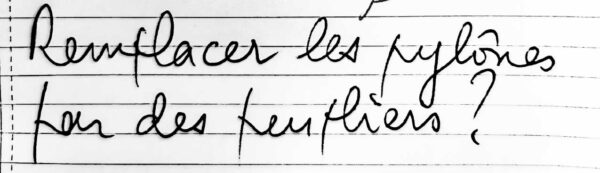 Remplacer les pylônes
par des peupliers ?